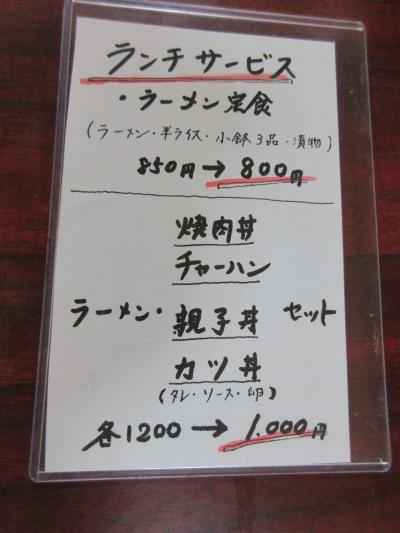 ランチサービス
・ラーメン定食
(ラーメン・半ライス・小鉢3品・漬物)
850円→800円
焼肉丼
チャーハン
ラーメン・親子丼 セット
カツ丼
(タレ・ソース・卵)
各1200→1.000円